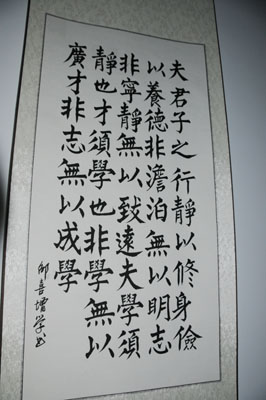 夫君子之行靜以修身儉
以養德非澹泊無以明志
非寧靜無以致遠夫學須
靜也才須學也非學無以
廣才非志無以成學
喜增学书